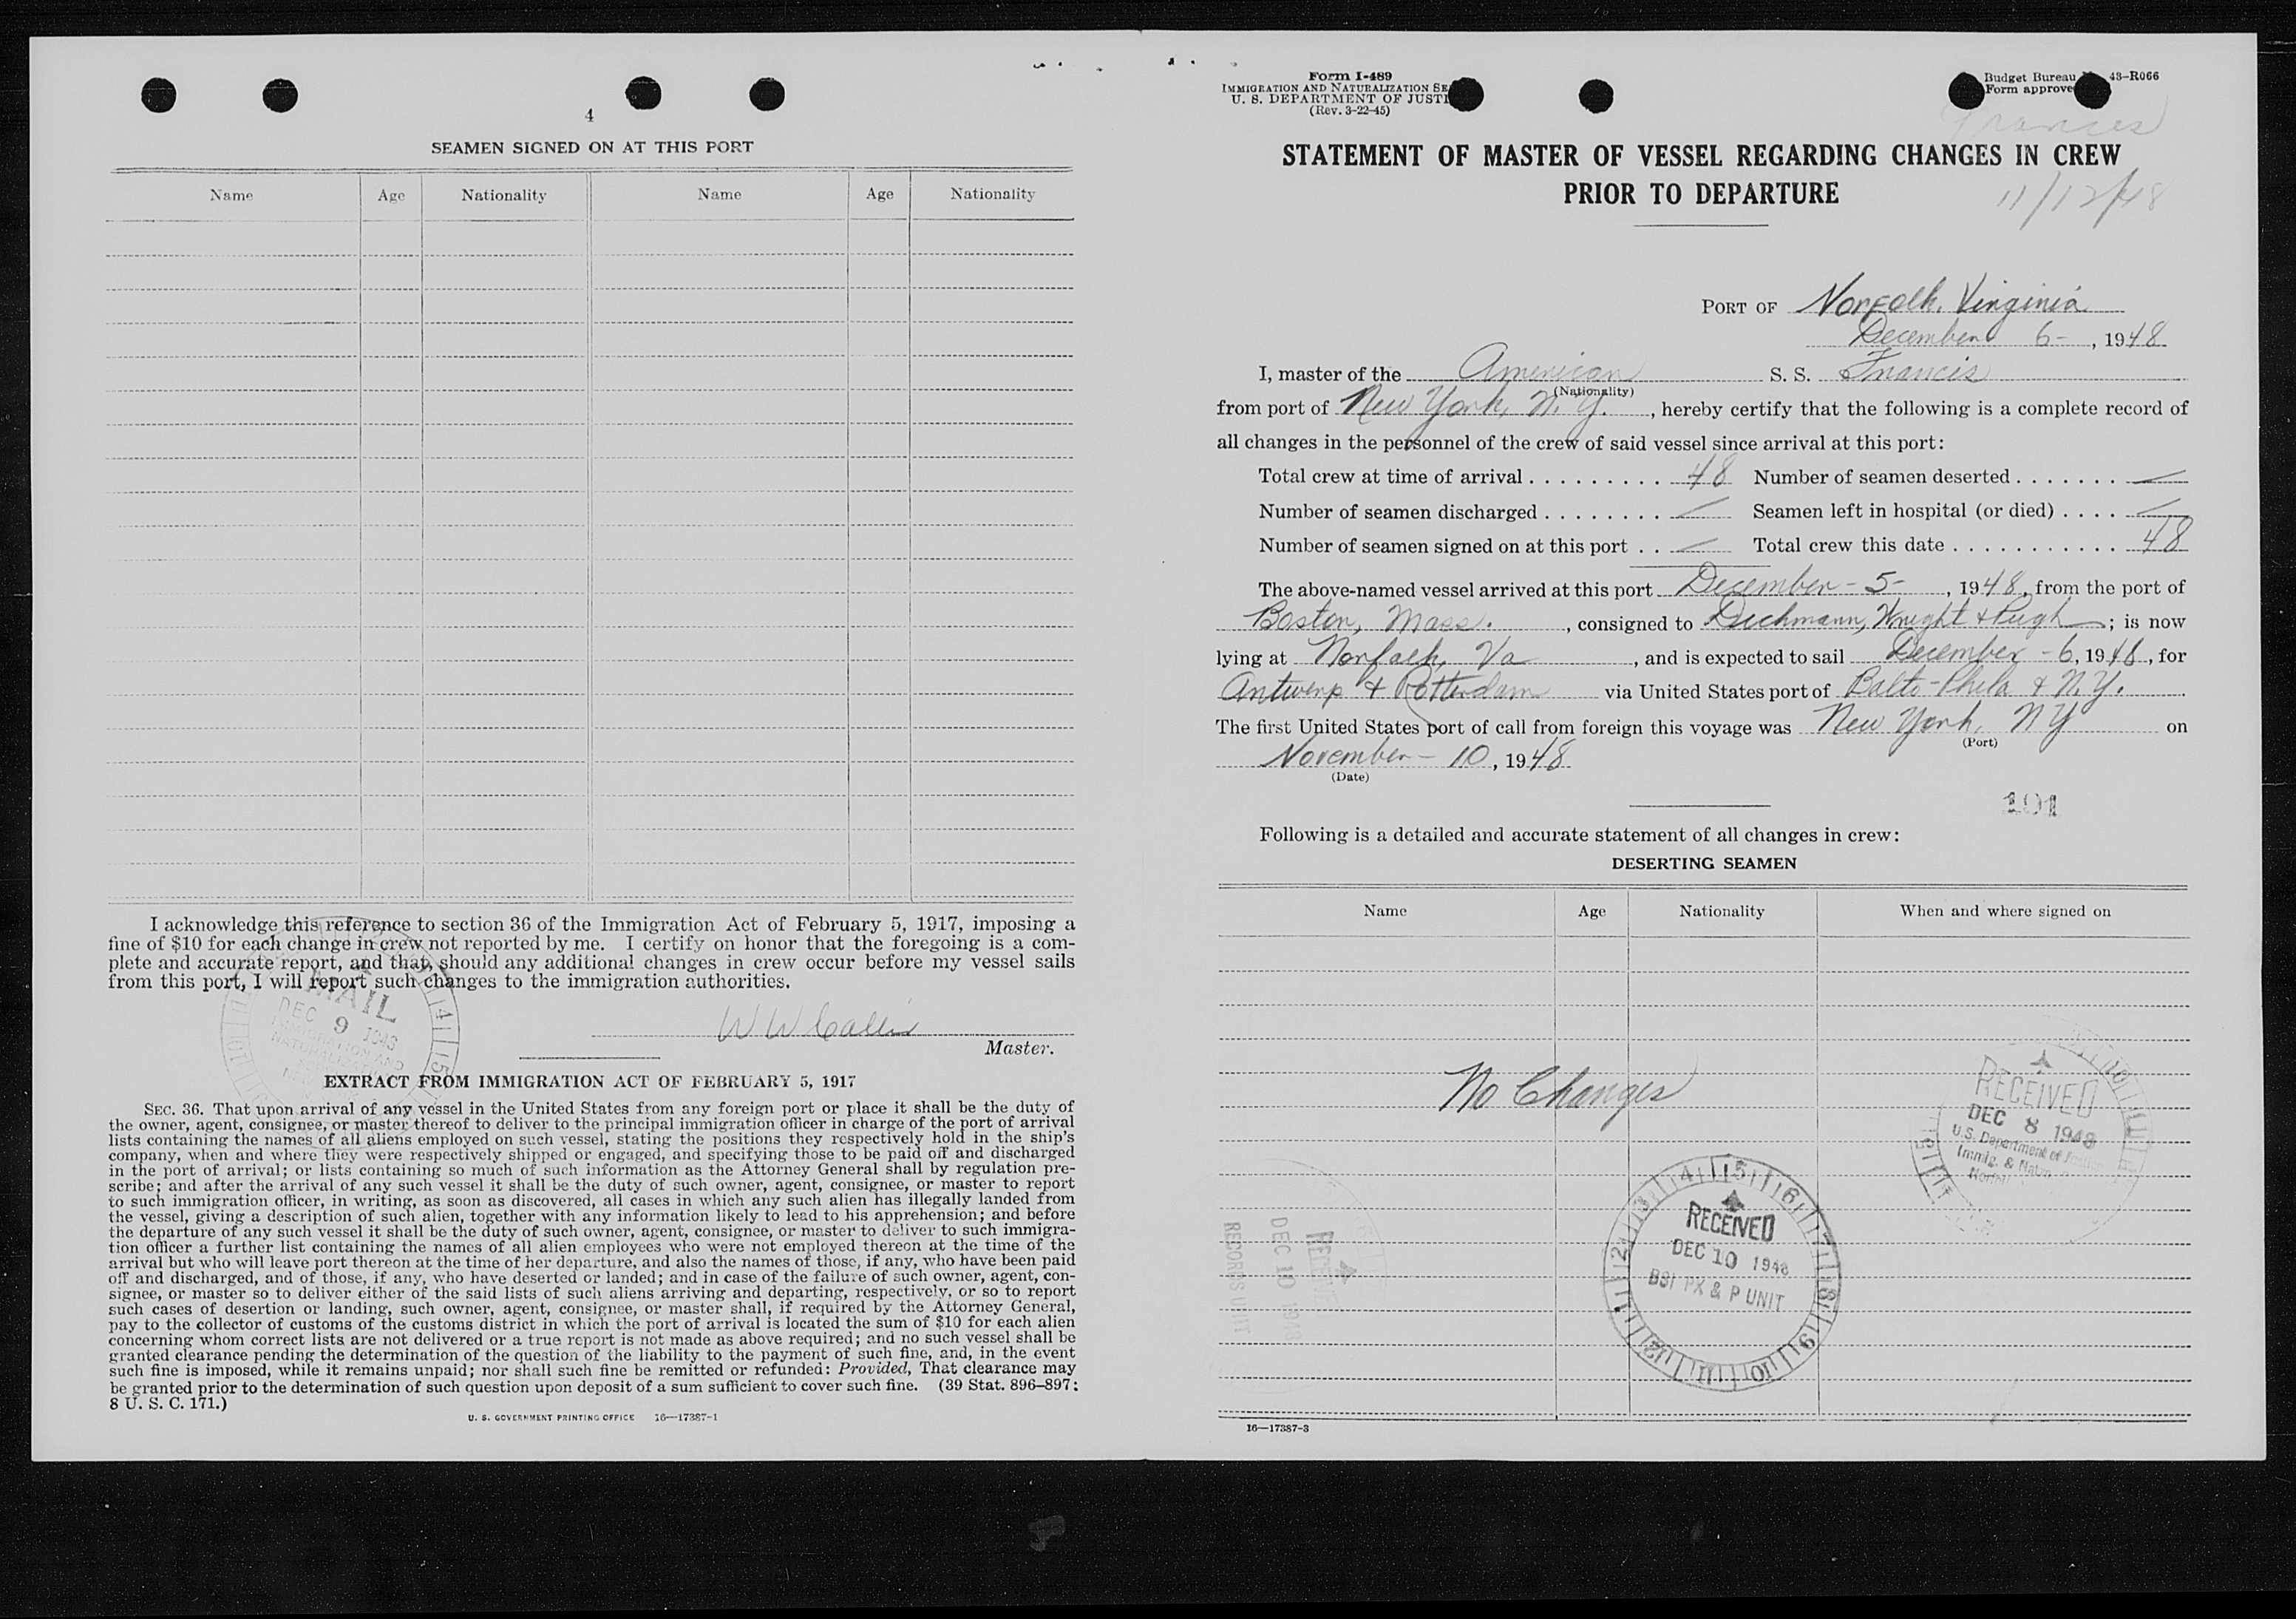 4
SEAMEN SIGNED ON AT THIS PORT
Name Age Nationality Name Age Nationality
I acknowledge this reference to section 36 of the Immigration Act of February 5, 1917, imposing a
fine of $10 for each change in crew not reported by me. I certify on honor that the foregoing is a com-
plete and accurate report, and that, should any additional changes in crew occur before my vessel sails
from this port, I will report such changes to the immigration authorities.
MAIL
DEC 9
W W
Master.
EXTRACT FROM IMMIGRATION ACT OF FEBRUARY 5, 1917
SEC. 36. That upon arrival of any vessel in the United States from any foreign port or place it shall be the duty of
the owner, agent, consignee, or master thereof to deliver to the principal immigration officer in charge of the port of arrival
lists containing the names of all aliens employed on such vessel, stating the positions they respectively hold in the ship's
company, when and where they were respectively shipped or engaged, and specifying those to be paid off and discharged
in the port of arrival; or lists containing so much of such information as the Attorney General shall by regulation pre-
scribe; and after the arrival of any such vessel it shall be the duty of such owner, agent, consignee, or master to report
to such immigration officer, in writing, as soon as discovered, all cases in which any such alien has illegally landed from
the vessel, giving a description of such alien, together with any information likely to lead to his apprehension; and before
the departure of any such vessel it shall be the duty of such owner, agent, consignee, or master to deliver to such immigra-
tion officer a further list containing the names of all alien employees who were not employed thereon at the time of the
arrival but who will leave port thereon at the time of her departure, and also the names of those, if any, who have been paid
off and discharged, and of those, if any, who have deserted or landed; and in case of the failure of such owner, agent, con-
signee, or master so to deliver either of the said lists of such aliens arriving and departing, respectively, or so to report
such cases of desertion or landing, such owner, agent, consignee, or master shall, if required by the Attorney General,
pay to the collector of customs of the customs district in which the port of arrival is located the sum of $10 for each alien
concerning whom correct lists are not delivered or a true report is not made as above required; and no such vessel shall be
granted clearance pending the determination of the question of the liability to the payment of such fine, and, in the event
such fine is imposed, while it remains unpaid; nor shall such fine be remitted or refunded: Provided, That clearance may
be granted prior to the determination of such question upon deposit of a sum sufficient to cover such fine. (39 Stat. 896–897;
8 U. S. C. 171.)
U. S. GOVERNMENT PRINTING OFFICE 16—17387-1
Form I-489
IMMIGRATION AND NATURALIZATION SE
U. S. DEPARTMENT OF JUSTI
(Rev. 3-22-45)
Budget Bureau 43–R066
Form approve
Frances
STATEMENT OF MASTER OF VESSEL REGARDING CHANGES IN CREW
PRIOR TO DEPARTURE
11/12/48
PORT OF Norfolk, Virginia
December 6-, 1948
I, master of the American S. S. Francis
(Nationality)
from port of New York, N. Y., hereby certify that the following is a complete record of
all changes in the personnel of the crew of said vessel since arrival at this port:
Total crew at time of arrival 48 Number of seamen deserted —
Number of seamen discharged — Seamen left in hospital (or died) —
Number of seamen signed on at this port — Total crew this date 48
The above-named vessel arrived at this port December - 5-, 1948, from the port of
Boston, Mass., consigned to Dichmann, Wright & Pugh; is now
lying at Norfolk, Va, and is expected to sail December - 6, 1948, for
Antwerp & Rotterdam via United States port of Balto-Phila & N.Y.
The first United States port of call from foreign this voyage was New York, NY on
(Port)
November - 10, 1948
(Date)
191
Following is a detailed and accurate statement of all changes in crew:
DESERTING SEAMEN
Name Age Nationality When and where signed on
No Changes
RECEIVED
DEC 8 1948
U.S. Department of
Immig. &
RECEIVED
DEC 10 1948
BSI PX & P UNIT
DEC 10 1948
RECORDS UNIT
16—17387-3